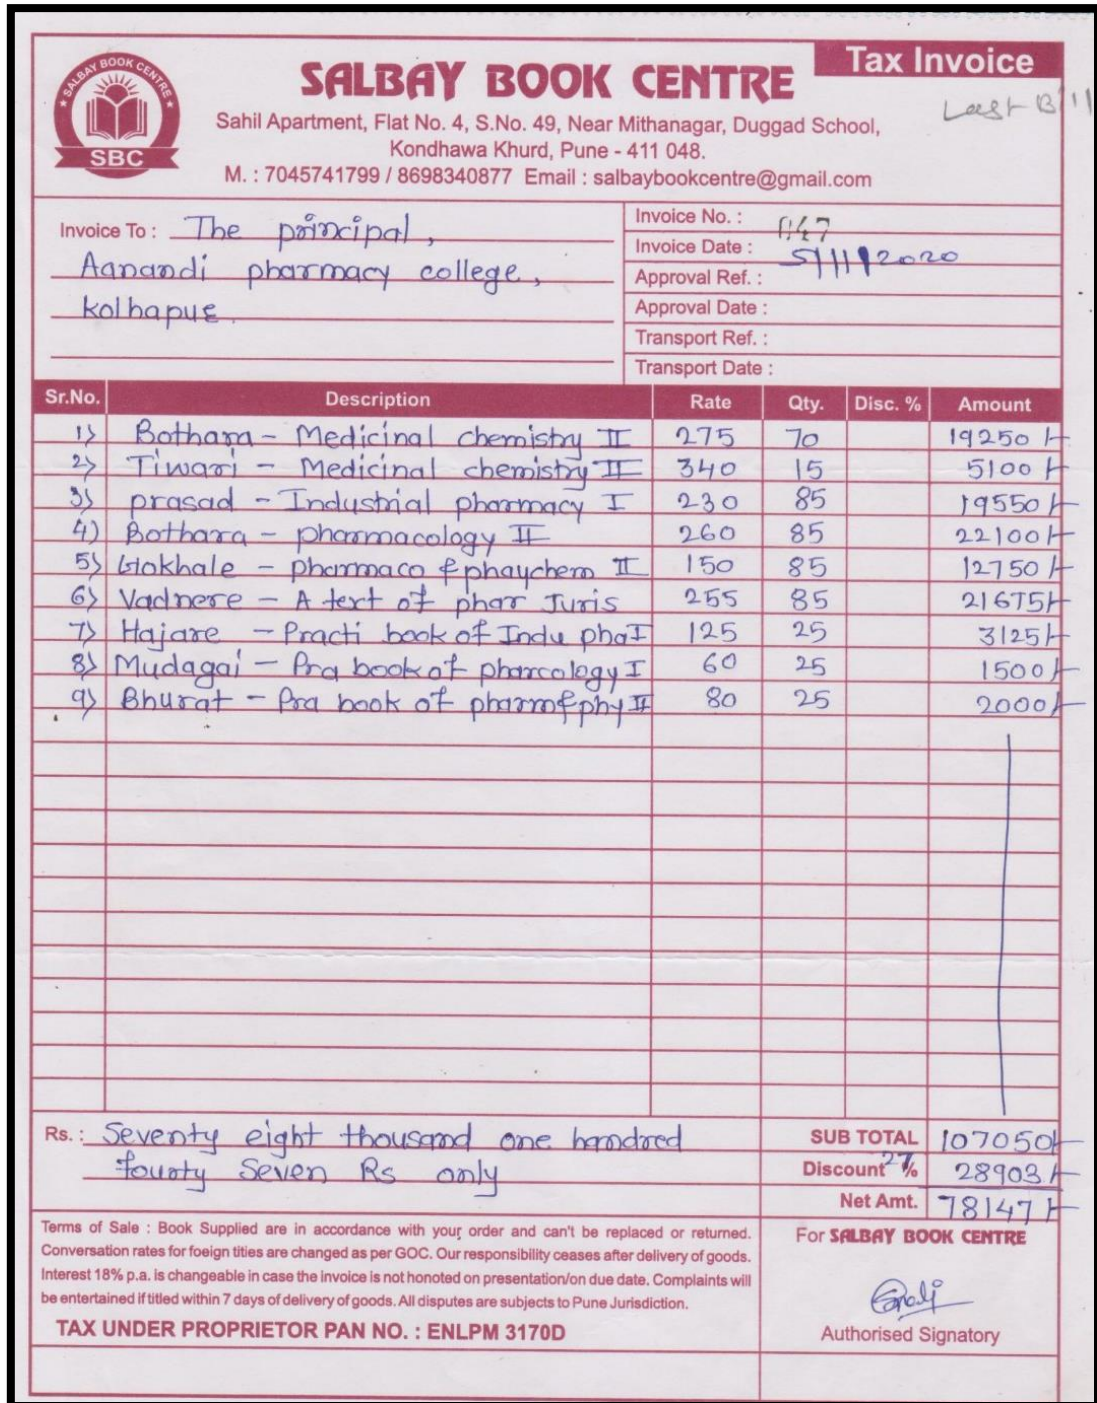 Tax Invoice
Last Bill
SALBAY BOOK CENTRE
SBC
SALBAY BOOK CENTRE
Sahil Apartment, Flat No. 4, S.No. 49, Near Mithanagar, Duggad School,
Kondhawa Khurd, Pune - 411 048.
M. : 7045741799 / 8698340877 Email : salbaybookcentre@gmail.com
Invoice To : The principal,
Aanandi pharmacy college,
kolhapur.
Invoice No. : 047
Invoice Date : 5/11/2020
Approval Ref. :
Approval Date :
Transport Ref. :
Transport Date :
Sr.No. Description Rate Qty. Disc. % Amount
1) Bothara - Medicinal chemistry II 275 70 19250/-
2) Tiwari - Medicinal chemistry II 340 15 5100/-
3) prasad - Industrial pharmacy I 230 85 19550/-
4) Bothara - pharmacology II 260 85 22100/-
5) Gokhale - pharmaco & phaychem II 150 85 12750/-
6) Vadnere - A text of phar Juris 255 85 21675/-
7) Hajare - Practi book of Indu pha I 125 25 3125/-
8) Mudagai - Pra book of pharcology I 60 25 1500/-
9) Bhurat - Pra book of pharm & phy II 80 25 2000/-
Rs. : Seventy eight thousand one hundred
fourty Seven Rs only
SUB TOTAL 107050/-
Discount 27% 28903/-
Net Amt. 78147/-
Terms of Sale : Book Supplied are in accordance with your order and can't be replaced or returned.
Conversation rates for foeign tities are changed as per GOC. Our responsibility ceases after delivery of goods.
Interest 18% p.a. is changeable in case the invoice is not honoted on presentation/on due date. Complaints will
be entertained if titled within 7 days of delivery of goods. All disputes are subjects to Pune Jurisdiction.
TAX UNDER PROPRIETOR PAN NO. : ENLPM 3170D
For SALBAY BOOK CENTRE
Authorised Signatory